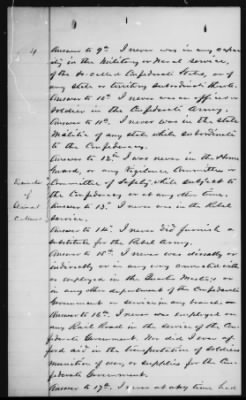 4
Answer to 9th. I never was in any capac
ity in the Military or Naval service,
of the so-called Confederate States, or of
any state or territory subordinate thereto.
Answer to 10th. I never was an officer or
soldier in the Confederate Army.
Answer to 11th. I never was in the state
Militia of any state while subordinate
to the Confederacy.
Answer to 12th. I was never in the Home
Guard, or any Vigilance Committee or
Committee of Safety, while subject to
the Confederacy or at any other time.
of
Answer to 13. I never was in the Rebel
service.
Answer to 14th. I never did furnish a
substitute for the Rebel Army.
Answer to 15th. I never was directly or
indirectly or in any way connected with
or employed in the Quarter Masters or
in any other department of the Confederate
Government or service in any branch.
Answer to 16th. I never was employed on
any Rail Road in the service of the Con
federate Government. Nor did I ever af
ford aid in the transportation of soldiers
munition of war, or supplies for the Con
federate Government.
Answer to 17th. I never at any time had